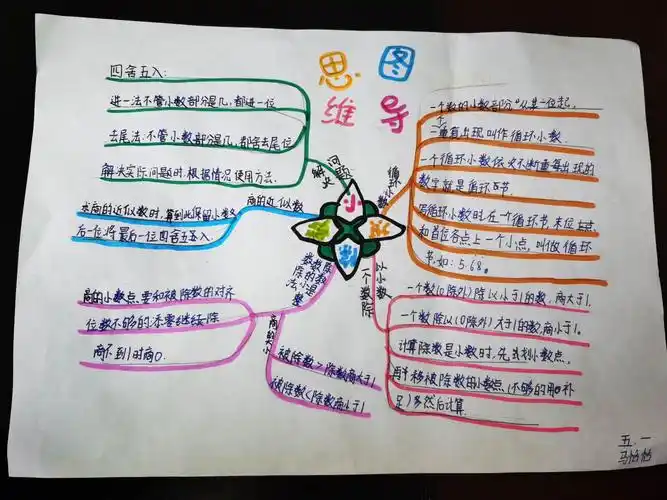 思 图
维 导
四舍五入:
进一法:不管小数部分是几,都进一位
去尾法:不管小数部分是几,都舍去尾位
解决实际问题时根据情况使用方法.
解决
问题
求商的近似数时,算到比保留小数多
后一位,将最后一位四舍五入.
商的近似数
商的小数点要和被除数的对齐
位数不够的添零继续除
商不到1时商0.
除数是整
数的小
数除法
商的大小
被除数>除数商大于1
被除数<除数商小于1
小
数
除
法
循环
小数
一个数的小数部分"从某一位起,
重复出现,叫作循环小数.
一个循环小数依次不断重复出现的
数字就是循环节
写循环小数时在一个循环节末位
和首位各点上一个小点,叫做循环
节.如:5.68。
一个数除
以小数
一个数(0除外)除以小于1的数,商大于1.
一个数除以(0除外)大于1的数,商小于1.
计算除数是小数时,先去划小数点.
再移被除数的小数点(不够的用0补
足)然后计算.
五.一
马怡怡